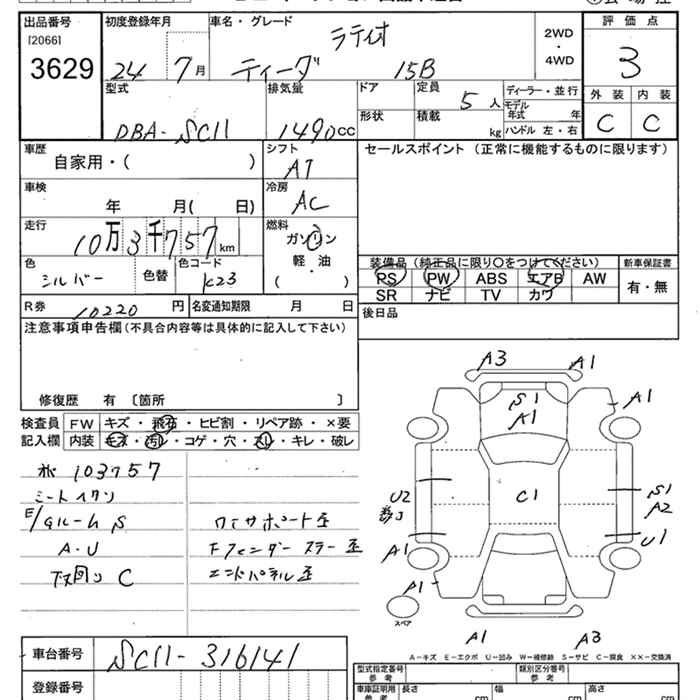 出品番号
[2066]
3629
初度登録年月
24 7月
車名・グレード
ラティオ
ティーダ 15B
2WD
・
4WD
評価点
3
外装 内装
C C
型式
DBA-SC11
排気量
1490cc
ドア
形状
定員
5人
積載
kg
ディーラー・並行
モデル年式 年
ハンドル 左・右
車歴
自家用・( )
シフト
AT
セールスポイント (正常に機能するものに限ります)
車検
年 月( 日)
冷房
AC
走行
10万3千757km
燃料
ガソリン
・
軽油
( )
色
シルバー
色替
色コード
K23
装備品 (純正品に限り〇をつけてください)
PS PW ABS エアB AW
SR ナビ TV カワ
新車保証書
有・無
R券
10220円
名変通知期限 月 日
後日品
注意事項申告欄(不具合内容等は具体的に記入して下さい)
修復歴 有 〔箇所 〕
検査員
記入欄
FW キズ・飛石・ヒビ割・リペア跡・×要
内装 キズ・汚れ・コゲ・穴・スレ・キレ・破レ
103757
E/Gルーム S
A・U
下回り C
コアサポート歪
Fフェンダーステー歪
エンドパネル歪
A3 A1
S1
A1
A1
U2
C1
S1
A2
A1
U1
A1
スペア
A1 A3
A-キズ E-エクボ U-凹み W-補修跡 S-サビ C-腐食 ××-交換済
車台番号
SC11-316141
登録番号
型式指定番号
参考
類別区分番号
参考
車庫証明用
参考
長さ cm
幅 cm
高さ cm